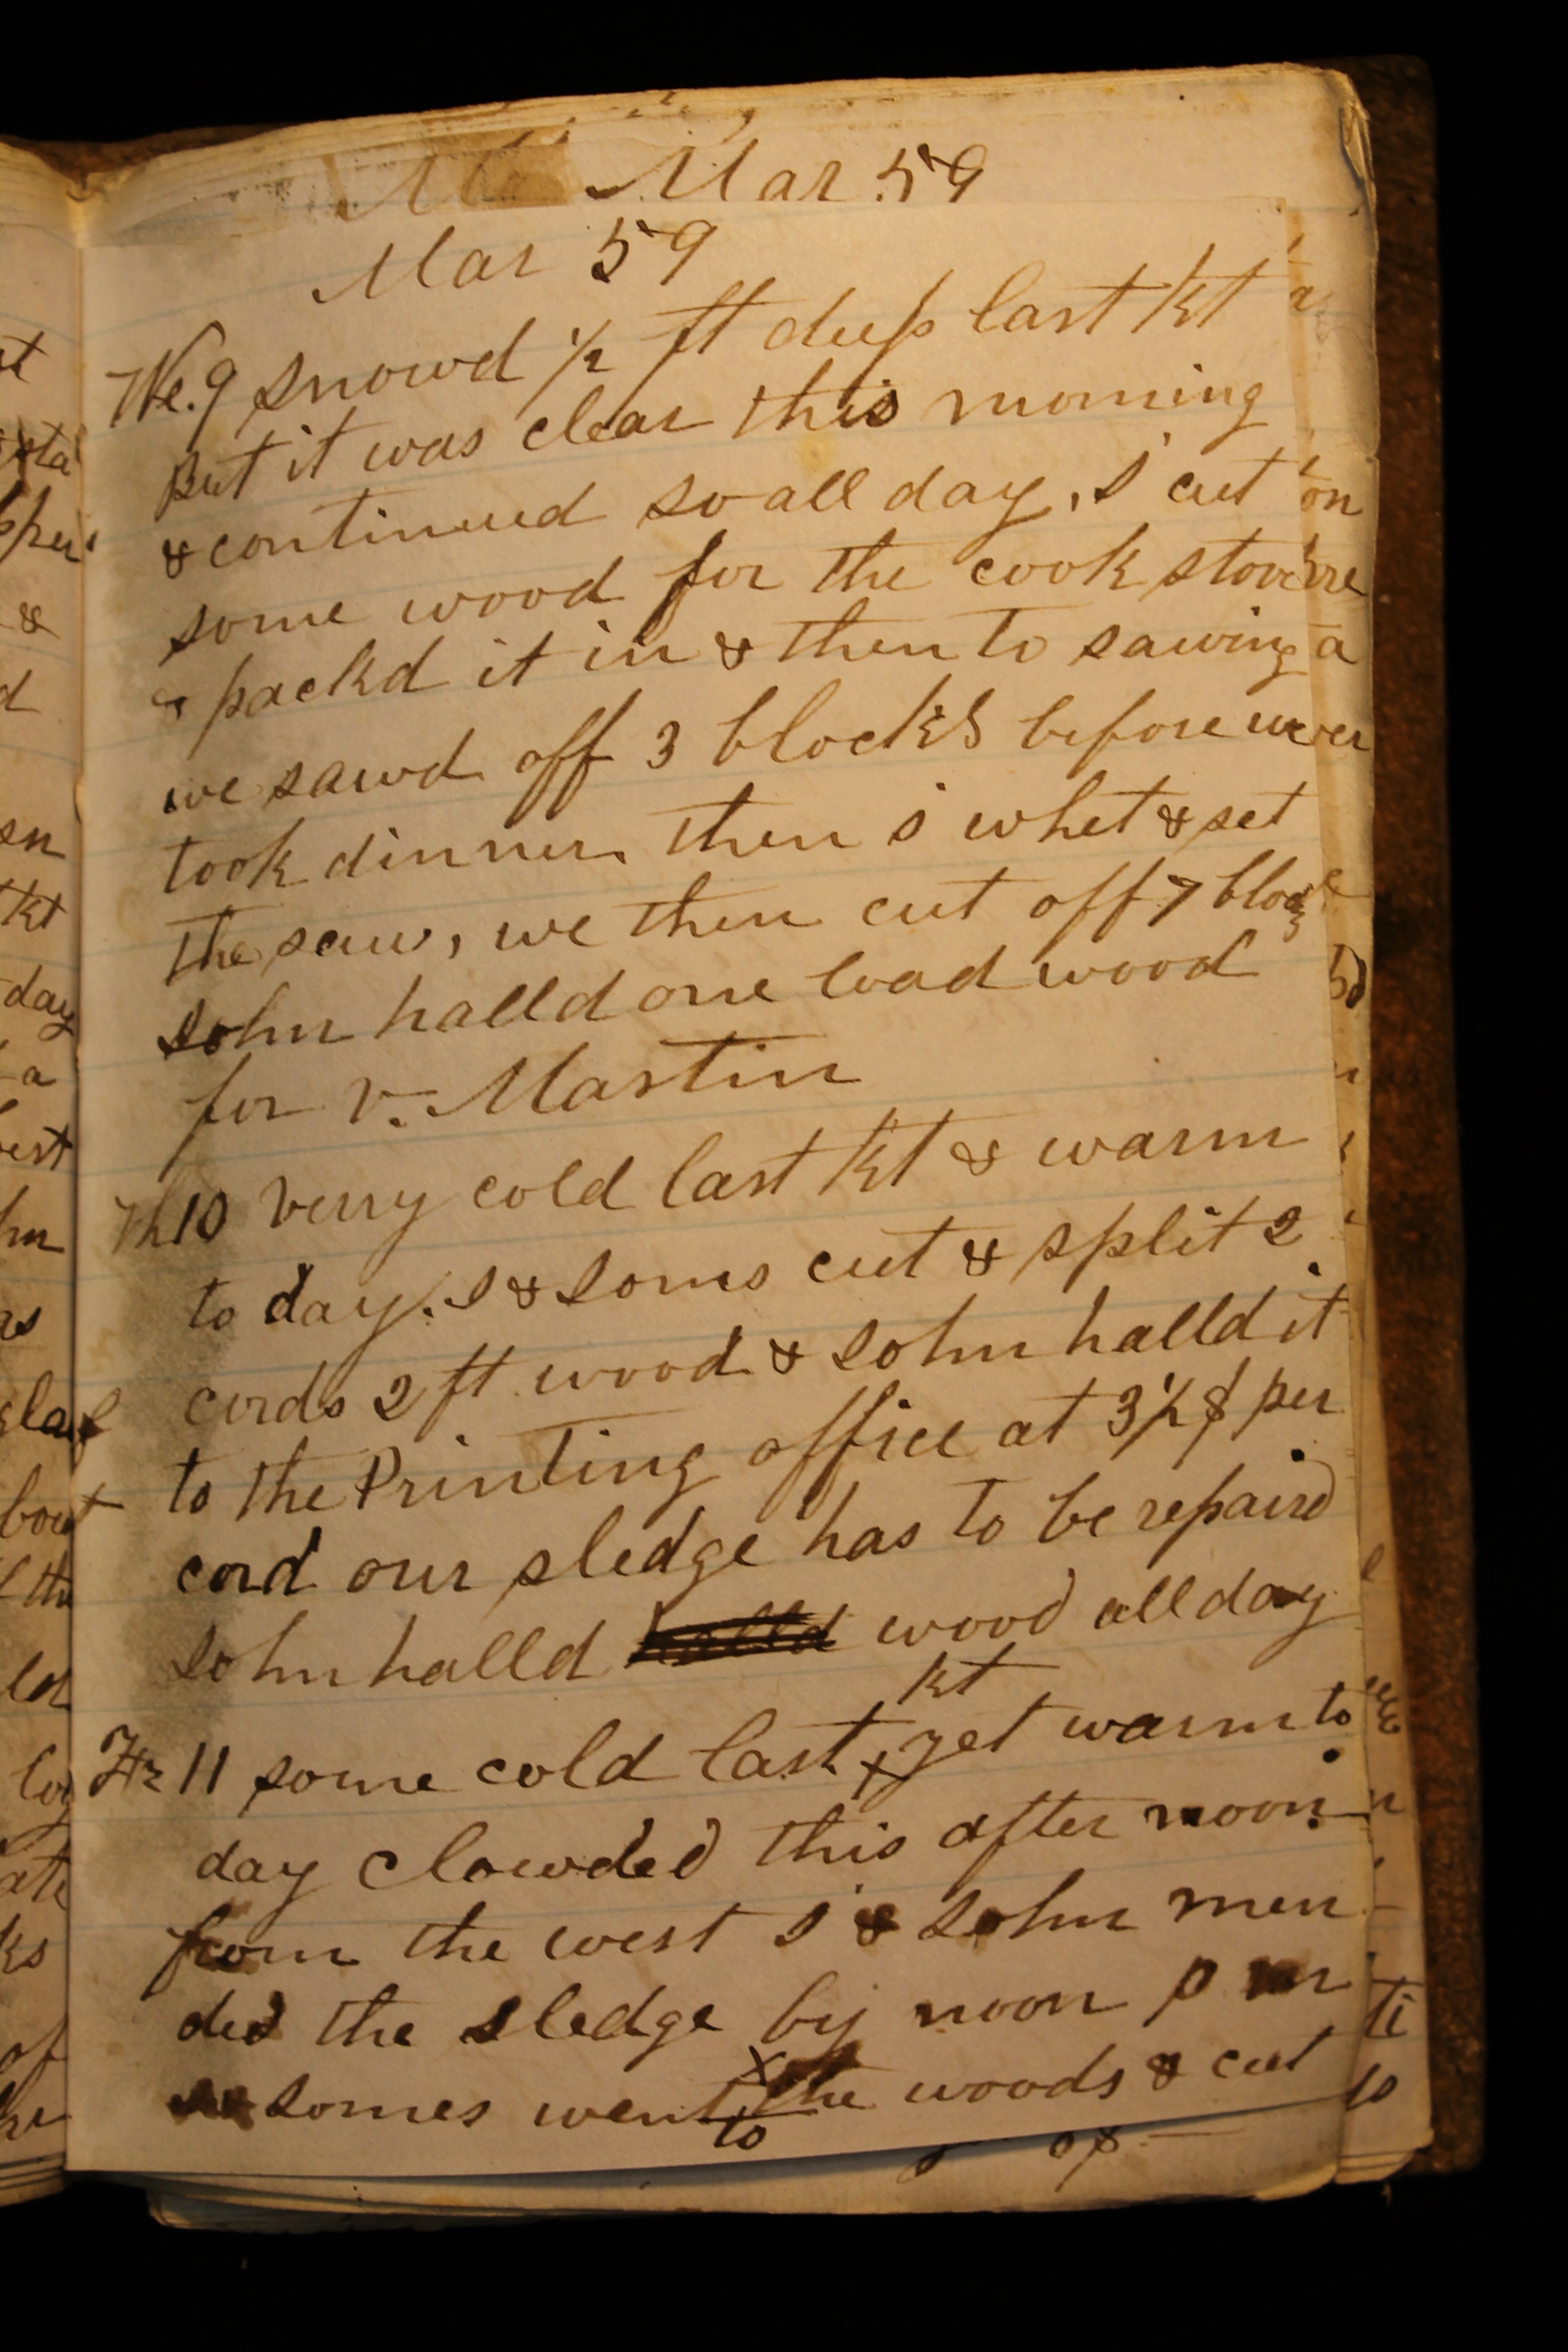 Mar 59
Mar 59
We. 9 snowd 1/2 ft deep last kt
But it was clear this morning
& continued so all day, I cut
some wood for the cook stove
& packd it in & then to sawing
we sawd off 3 blocks before we
took dinner. then I whet & set
the saw, we then cut off 7 blocks
John halld one load wood
for V. Mastin
Th 10 verry cold last kt & warm
to day. I & Soms cut & split 2
cords 2 ft wood & John halld it
to the Printing office at 3 1/2 $ per
cord our sledge has to be repaird
John halld halld wood all day
kt
Fr 11 some cold last x yet warm to
day clowded this after noon
from the west I & John men
ded the sledge by noon p m
Somes went x the woods & cut
to